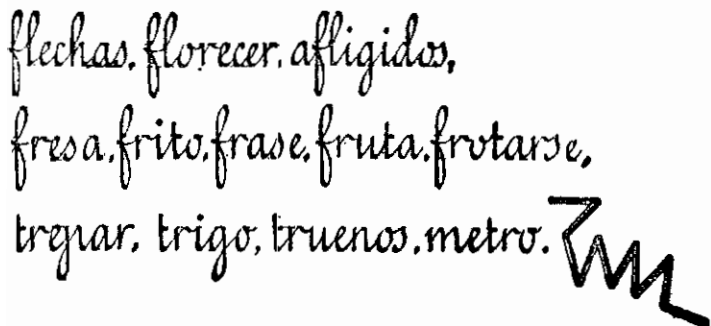 flechas, florecer, afligidos,
fresa, frito, frase, fruta, frotarse,
trepar, trigo, truenos, metro.